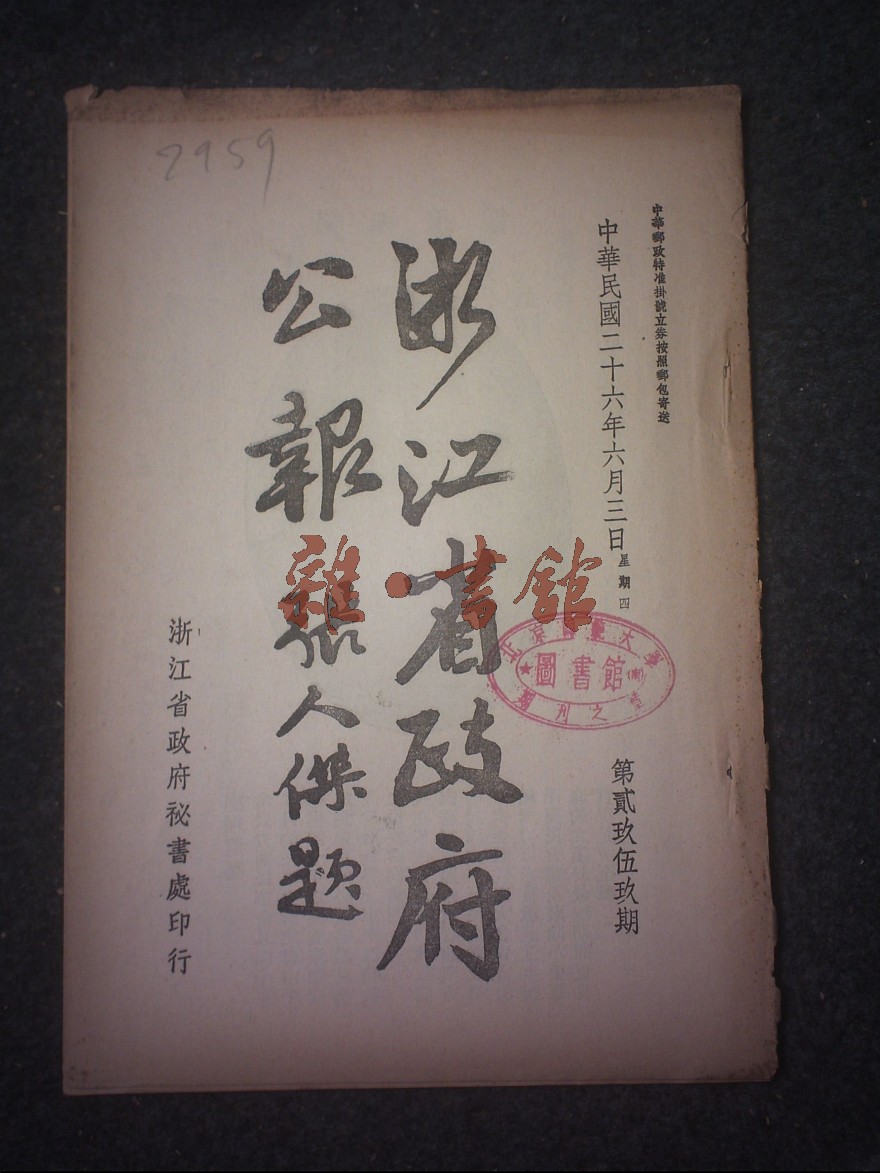 中華郵政特准掛號立券按照郵包寄送
中華民國二十六年六月三日星期四
第貳玖伍玖期
浙江省政府
公報張人傑題
浙江省政府祕書處印行
2959
雜·書館
圖書館